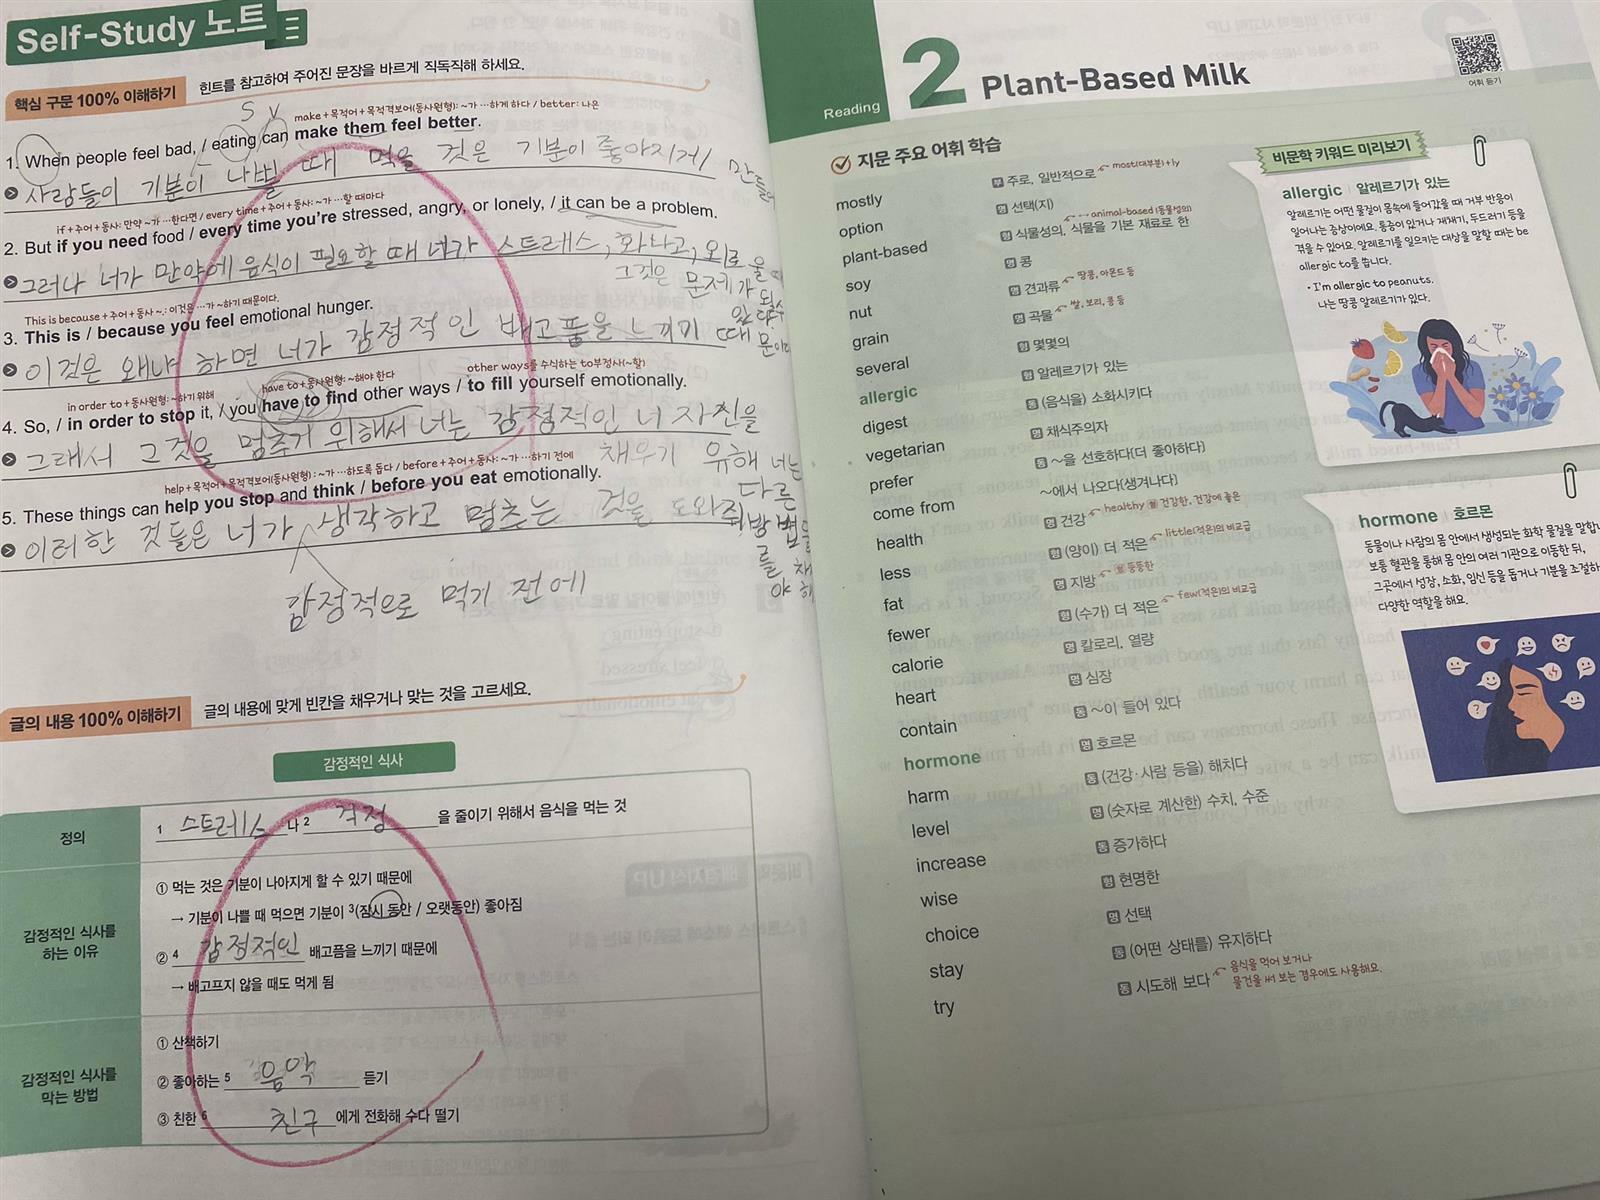 Self-Study 노트
핵심 구문 100% 이해하기
힌트를 참고하여 주어진 문장을 바르게 직독직해 하세요.
S V
make+목적어+목적격보어(동사원형): ~가 …하게 하다 / better: 나은
1. When people feel bad, / eating can make them feel better.
사람들이 기분이 나쁠 때 먹을 것은 기분이 좋아지게 / 만들
if+주어+동사: 만약 ~가 …한다면 / every time+주어+동사: ~가 …할 때마다
2. But if you need food / every time you're stressed, angry, or lonely, / it can be a problem.
그러나 너가 만약에 음식이 필요할 때 너가 스트레스, 화나고, 외로울
그것은 문제가 될 수
있다
This is because+주어+동사 ~.: 이것은 …가 ~하기 때문이다.
3. This is / because you feel emotional hunger.
이것은 왜냐하면 너가 감정적인 배고픔을 느끼기 때문이다
in order to+동사원형: ~하기 위해
have to+동사원형: ~해야 한다
other ways를 수식하는 to부정사(~할)
4. So, / in order to stop it, / you have to find other ways / to fill yourself emotionally.
그래서 그것을 멈추기 위해서 너는 감정적인 너 자신을
채우기 위해 너는
다른
방법들
를
야 해
help+목적어+목적격보어(동사원형): ~가 …하도록 돕다 / before+주어+동사: ~가 …하기 전에
5. These things can help you stop and think / before you eat emotionally.
이러한 것들은 너가 생각하고 멈추는 것을 도와줘
감정적으로 먹기 전에
글의 내용 100% 이해하기
글의 내용에 맞게 빈칸을 채우거나 맞는 것을 고르세요.
감정적인 식사
정의
1 스트레스 나 2 걱정 을 줄이기 위해서 음식을 먹는 것
감정적인 식사를
하는 이유
① 먹는 것은 기분이 나아지게 할 수 있기 때문에
→ 기분이 나쁠 때 먹으면 기분이 3(잠시 동안 / 오랫동안) 좋아짐
② 4 감정적인 배고픔을 느끼기 때문에
→ 배고프지 않을 때도 먹게 됨
감정적인 식사를
막는 방법
① 산책하기
② 좋아하는 5 음악 듣기
③ 친한 6 친구 에게 전화해 수다 떨기
Reading 2 Plant-Based Milk
어휘 듣기
지문 주요 어휘 학습
mostly 부 주로, 일반적으로 most(대부분)+ly
option 명 선택(지)
plant-based 형 식물성의, 식물을 기본 재료로 한 ↔ animal-based(동물성의)
soy 명 콩
nut 명 견과류 땅콩, 아몬드 등
grain 명 곡물 쌀, 보리, 콩 등
several 형 몇몇의
allergic 형 알레르기가 있는
digest 동 (음식을) 소화시키다
vegetarian 명 채식주의자
prefer 동 ~을 선호하다[더 좋아하다]
come from ~에서 나오다[생겨나다]
health 명 건강 healthy 형 건강한, 건강에 좋은
less 형 (양이) 더 적은 little(적은)의 비교급
fat 명 지방 형 뚱뚱한
fewer 형 (수가) 더 적은 few(적은)의 비교급
calorie 명 칼로리, 열량
heart 명 심장
contain 동 ~이 들어 있다
hormone 명 호르몬
harm 동 (건강·사람 등을) 해치다
level 명 (숫자로 계산한) 수치, 수준
increase 동 증가하다
wise 형 현명한
choice 명 선택
stay 동 (어떤 상태를) 유지하다
try 동 시도해 보다 음식을 먹어 보거나
물건을 써 보는 경우에도 사용해요.
비문학 키워드 미리보기
allergic | 알레르기가 있는
알레르기는 어떤 물질이 몸속에 들어갔을 때 거부 반응이
일어나는 증상이에요. 통증이 있거나 재채기, 두드러기 등을
겪을 수 있어요. 알레르기를 일으키는 대상을 말할 때는 be
allergic to를 씁니다.
• I'm allergic to peanuts.
나는 땅콩 알레르기가 있다.
hormone | 호르몬
동물이나 사람의 몸 안에서 생성되는 화학 물질을 말합니
보통 혈관을 통해 몸 안의 여러 기관으로 이동한 뒤,
그곳에서 성장, 소화, 임신 등을 돕거나 기분을 조절하
다양한 역할을 해요.